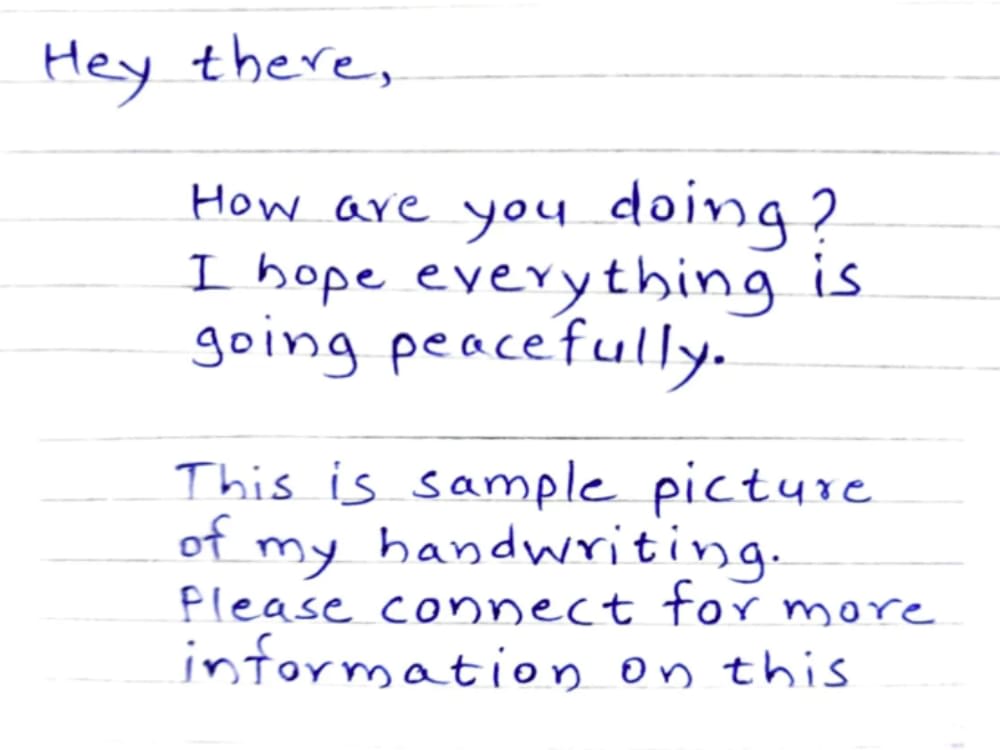 Hey there,
How are you doing?
I hope everything is
going peacefully.
This is sample picture
of my handwriting.
Please connect for more
information on this